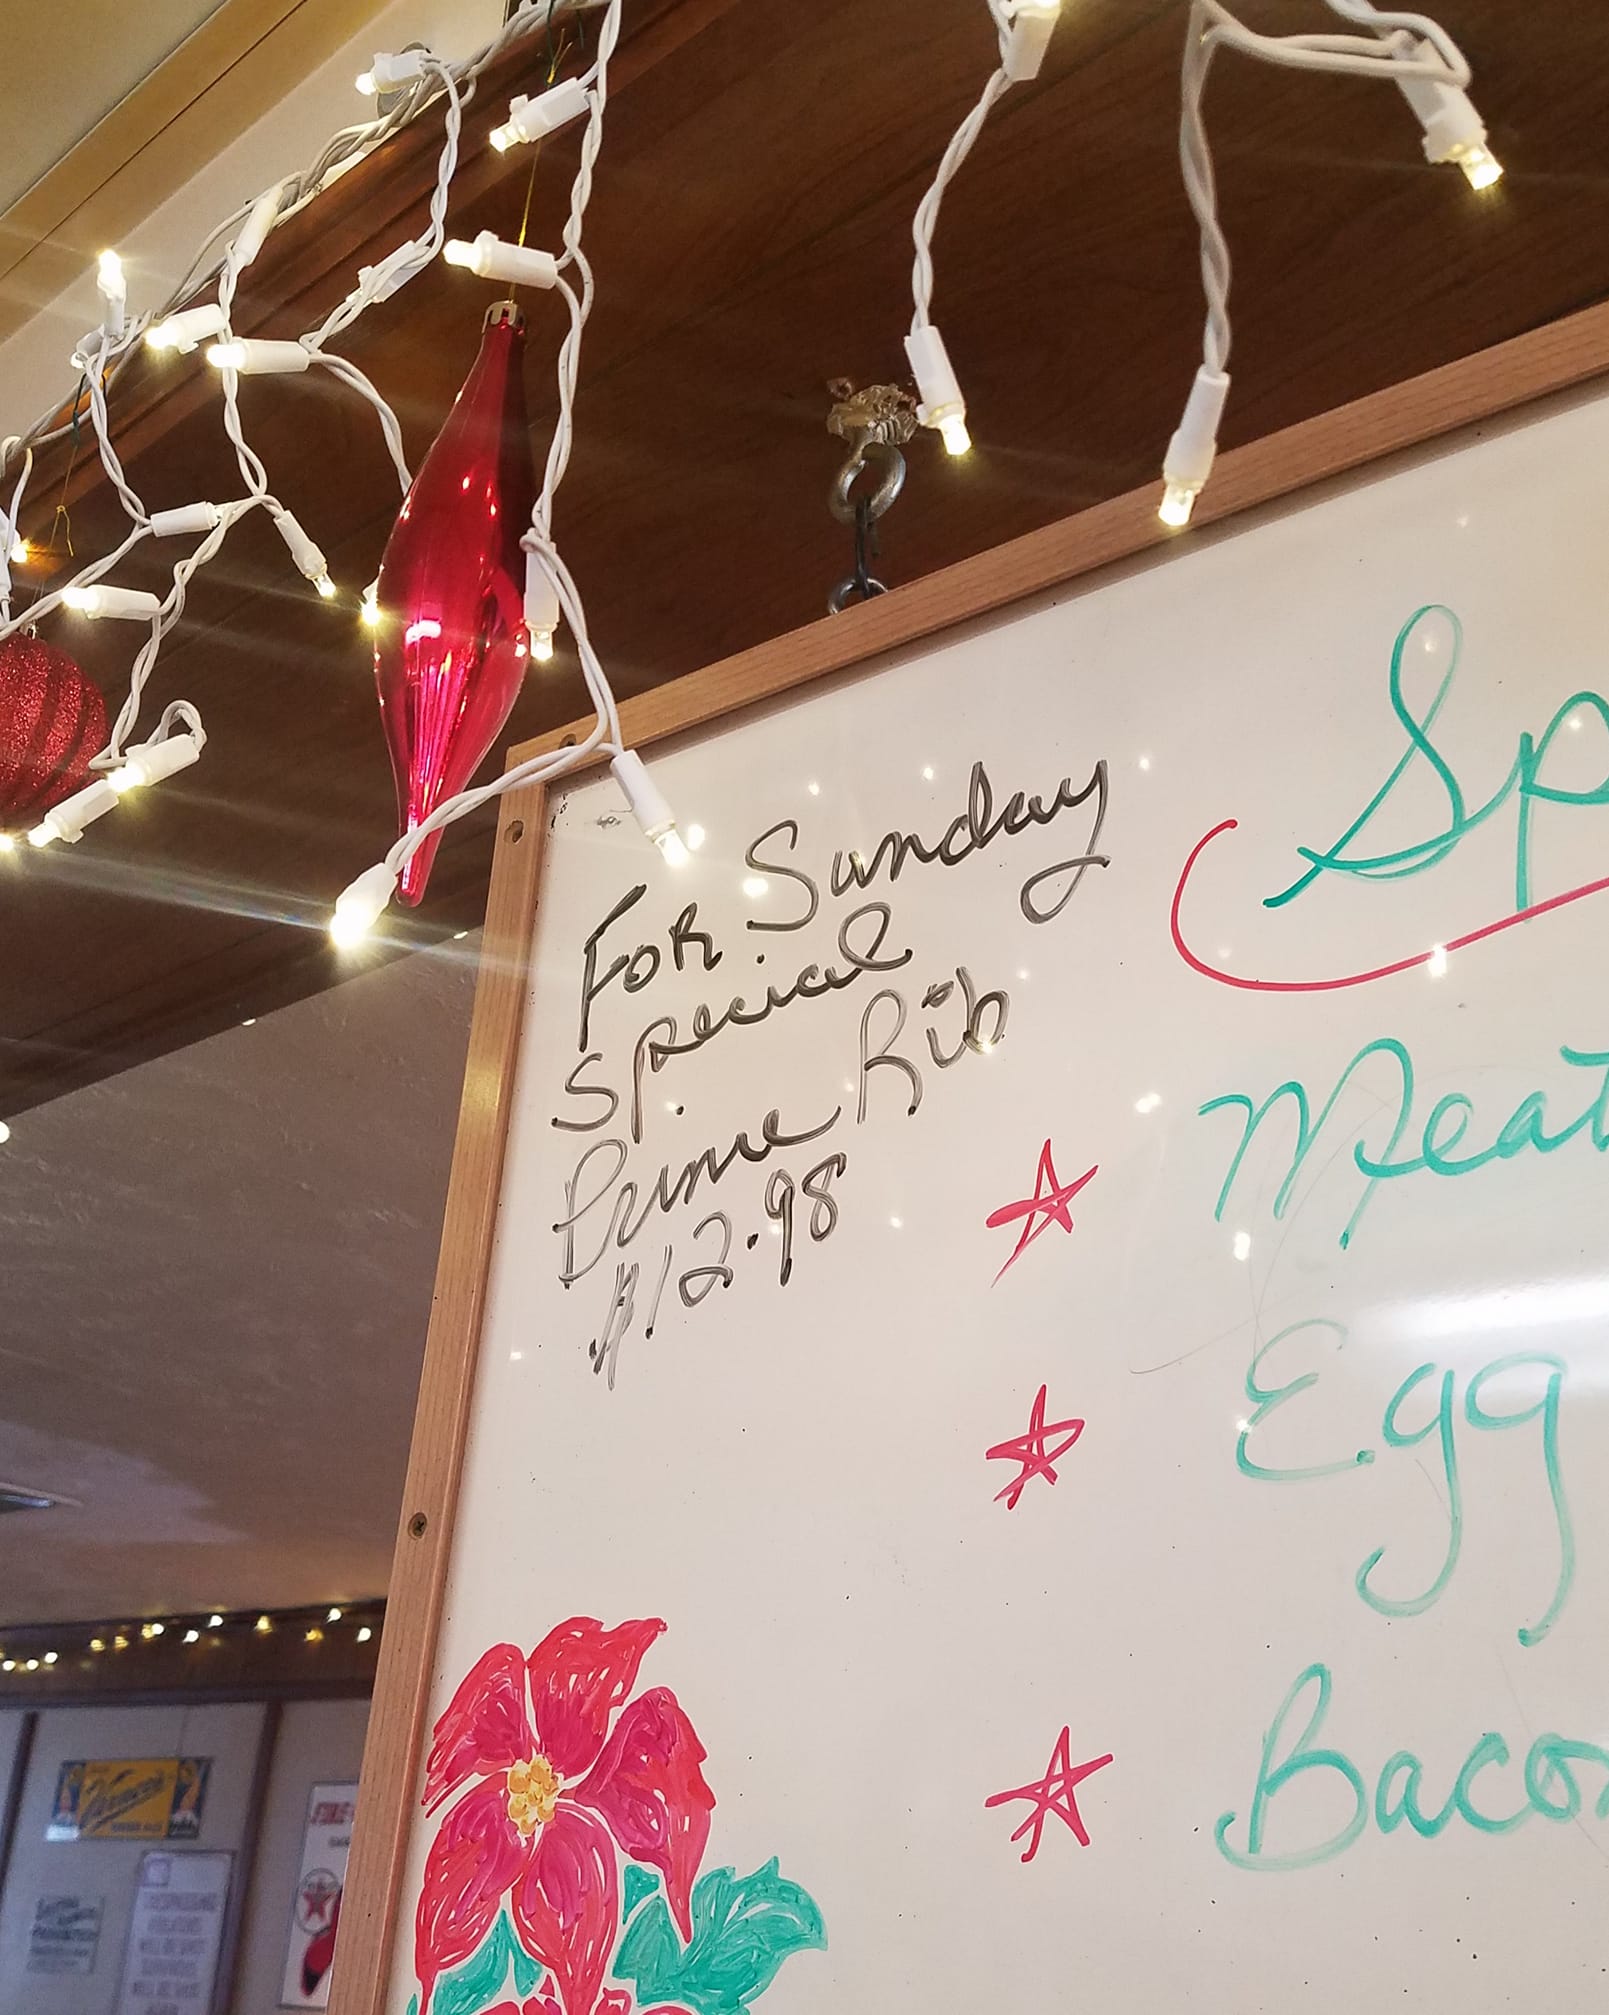 For Sunday
Special
Prime Rib
$12.98
Sp
Meat
Egg
Baco
Vernor's